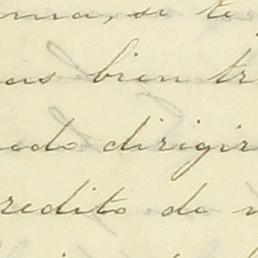 ma, si te
as bien tr
edo dirigir
redito de